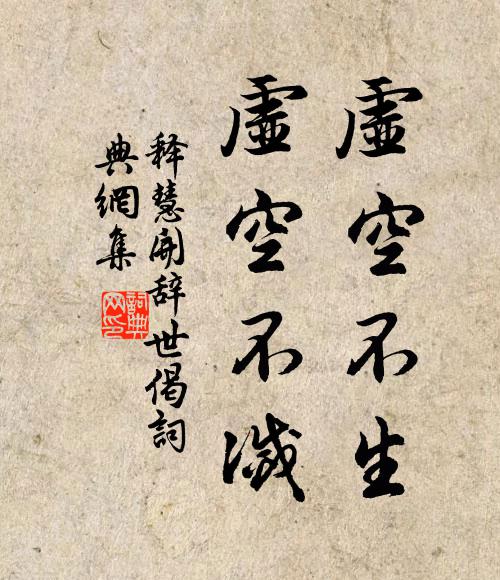 虛空不生
虛空不滅
释慧開辞世偈詞
典網集
詞典
网印